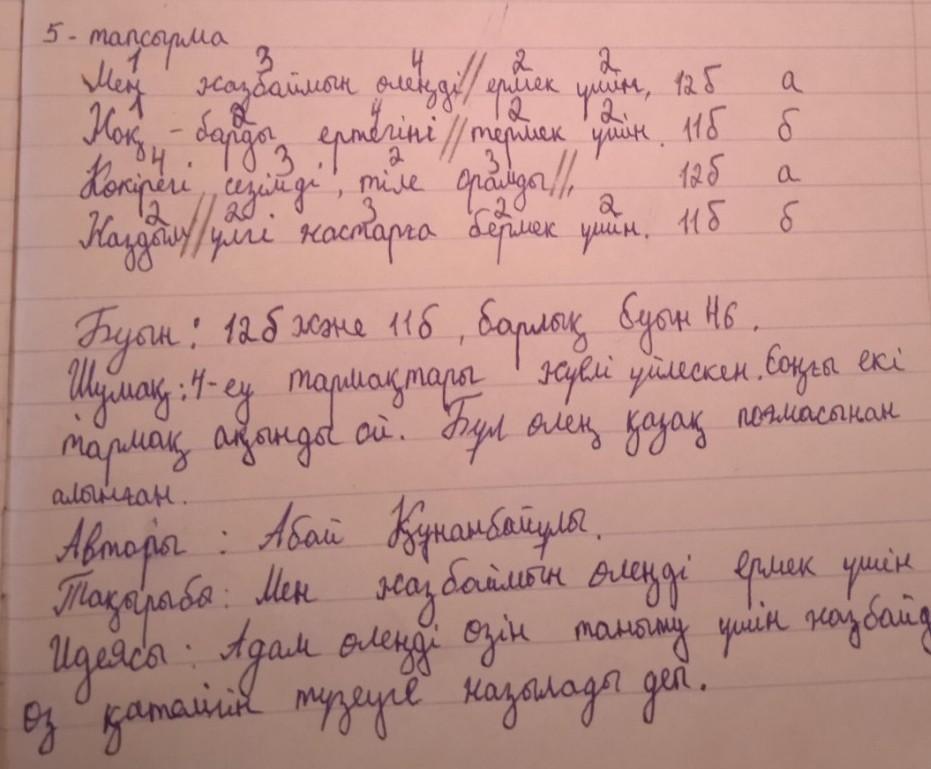 5 - тапсырма
1 3 4 2 2
Мен жазбаймын өлеңді// ермек үшін, 12б а
1 2 4 2 2
Жоқ - барды ертегіні //термек үшін. 11б б
4 3 2 3
Көкірегі сезімді, тіле орамды//, 12б а
2 2 3 2 2
Жаздым// үлгі жастарға бермек үшін. 11б б
Буын: 12б және 11б, барлық буын 46.
Шумақ: 4-еу тармақтары үйлескен. Соңғы екі
тармақ ақынды ой. Бұл өлең қазақ поямасынан
алынған.
Авторы : Абай Құнанбайұлы.
Тақырыбы: Мен жазбаймын өлеңді ермек үшін
Идеясы: Адам өлеңді өзін таныту үшін жазбайд
өз қателігін түзеуге жазылады деп.